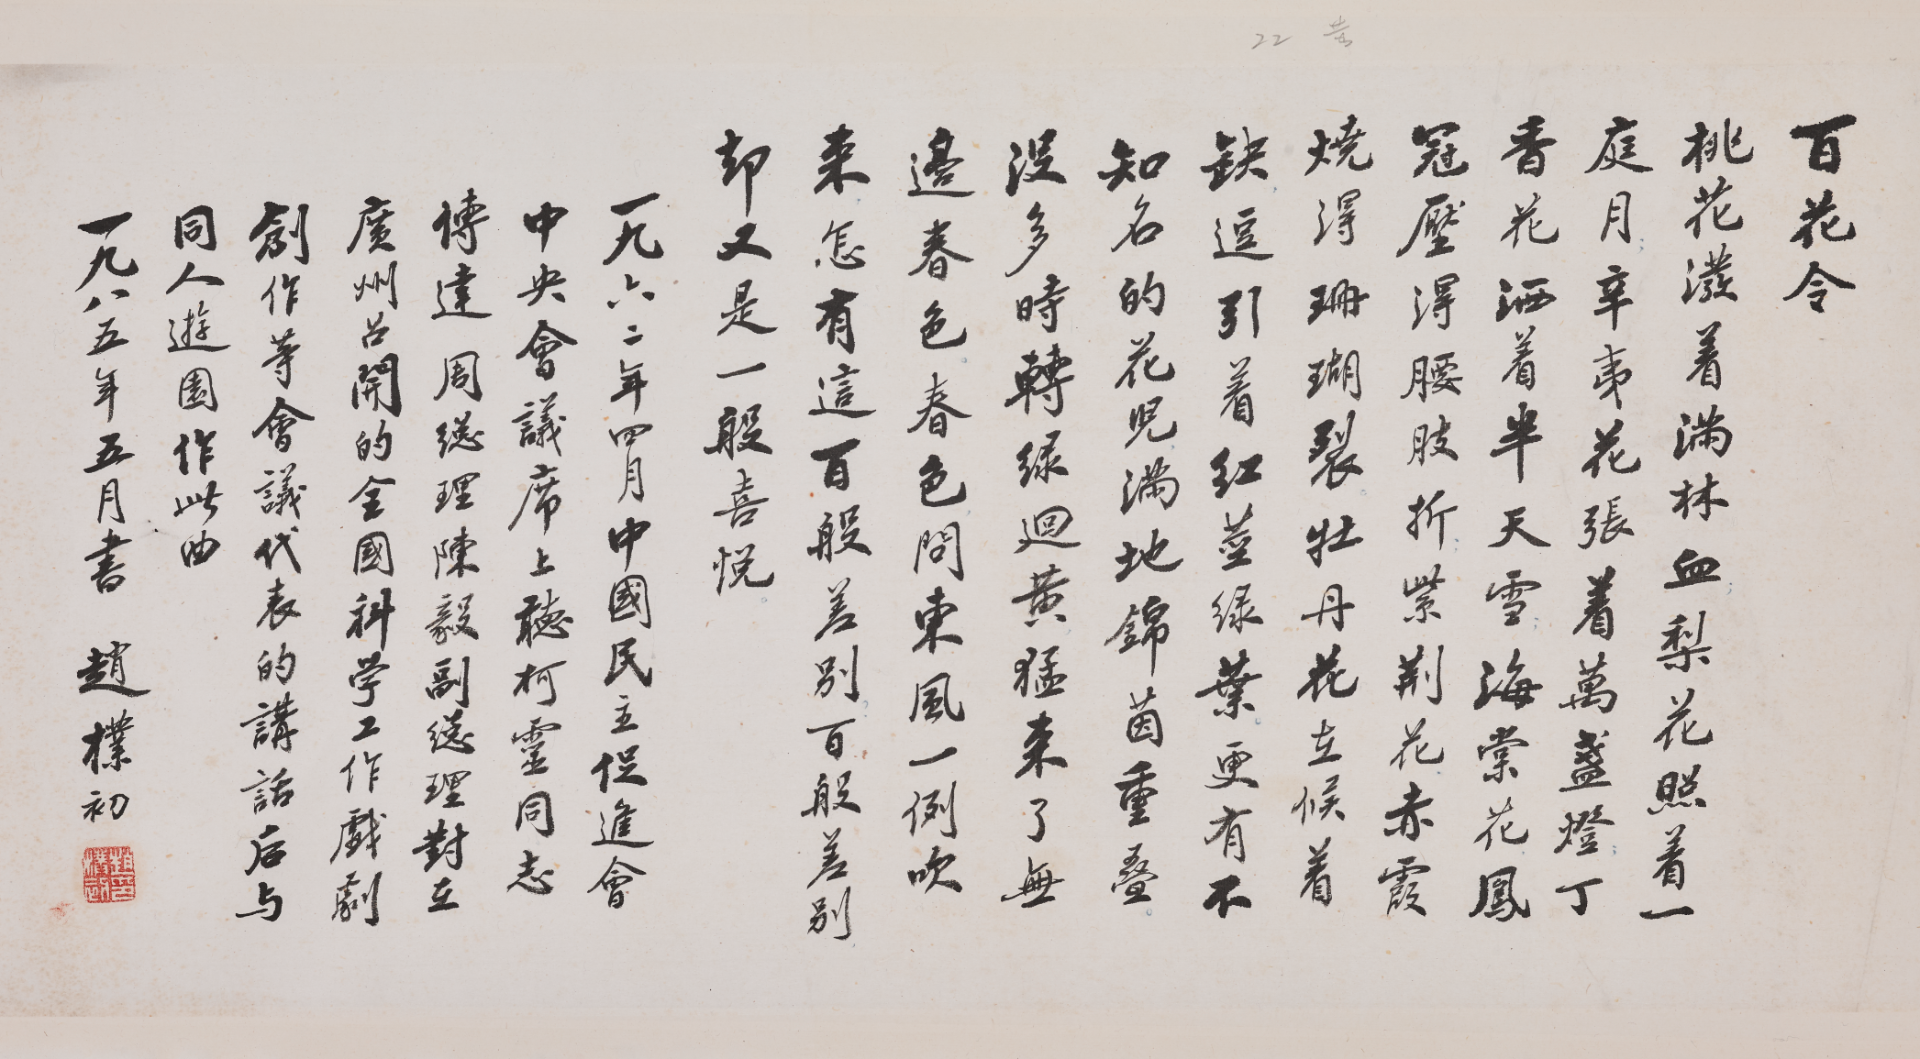 百花令
桃花潑着滿林血梨花照着一
庭月辛夷花張着萬盞燈丁
香花洒着半天雪海棠花鳳
冠壓得腰肢折紫荆花赤霞
燒得珊瑚裂牡丹花立候着
缺逗引着红莖绿葉更有不
知名的花児滿地錦茵重叠
没多時轉绿迴黄猛来了無
邉春色春色問東風一例吹
来怎有這百般差别百般差别
却又是一般喜悦
一九六二年四月中國民主促進會
中央會議席上聽柯靈同志
傳達周總理陳毅副總理對在
廣州召開的全國科学工作戲劇
創作等會議代表的講話后与
同人遊園作此曲
一九八五年五月書 趙樸初
22